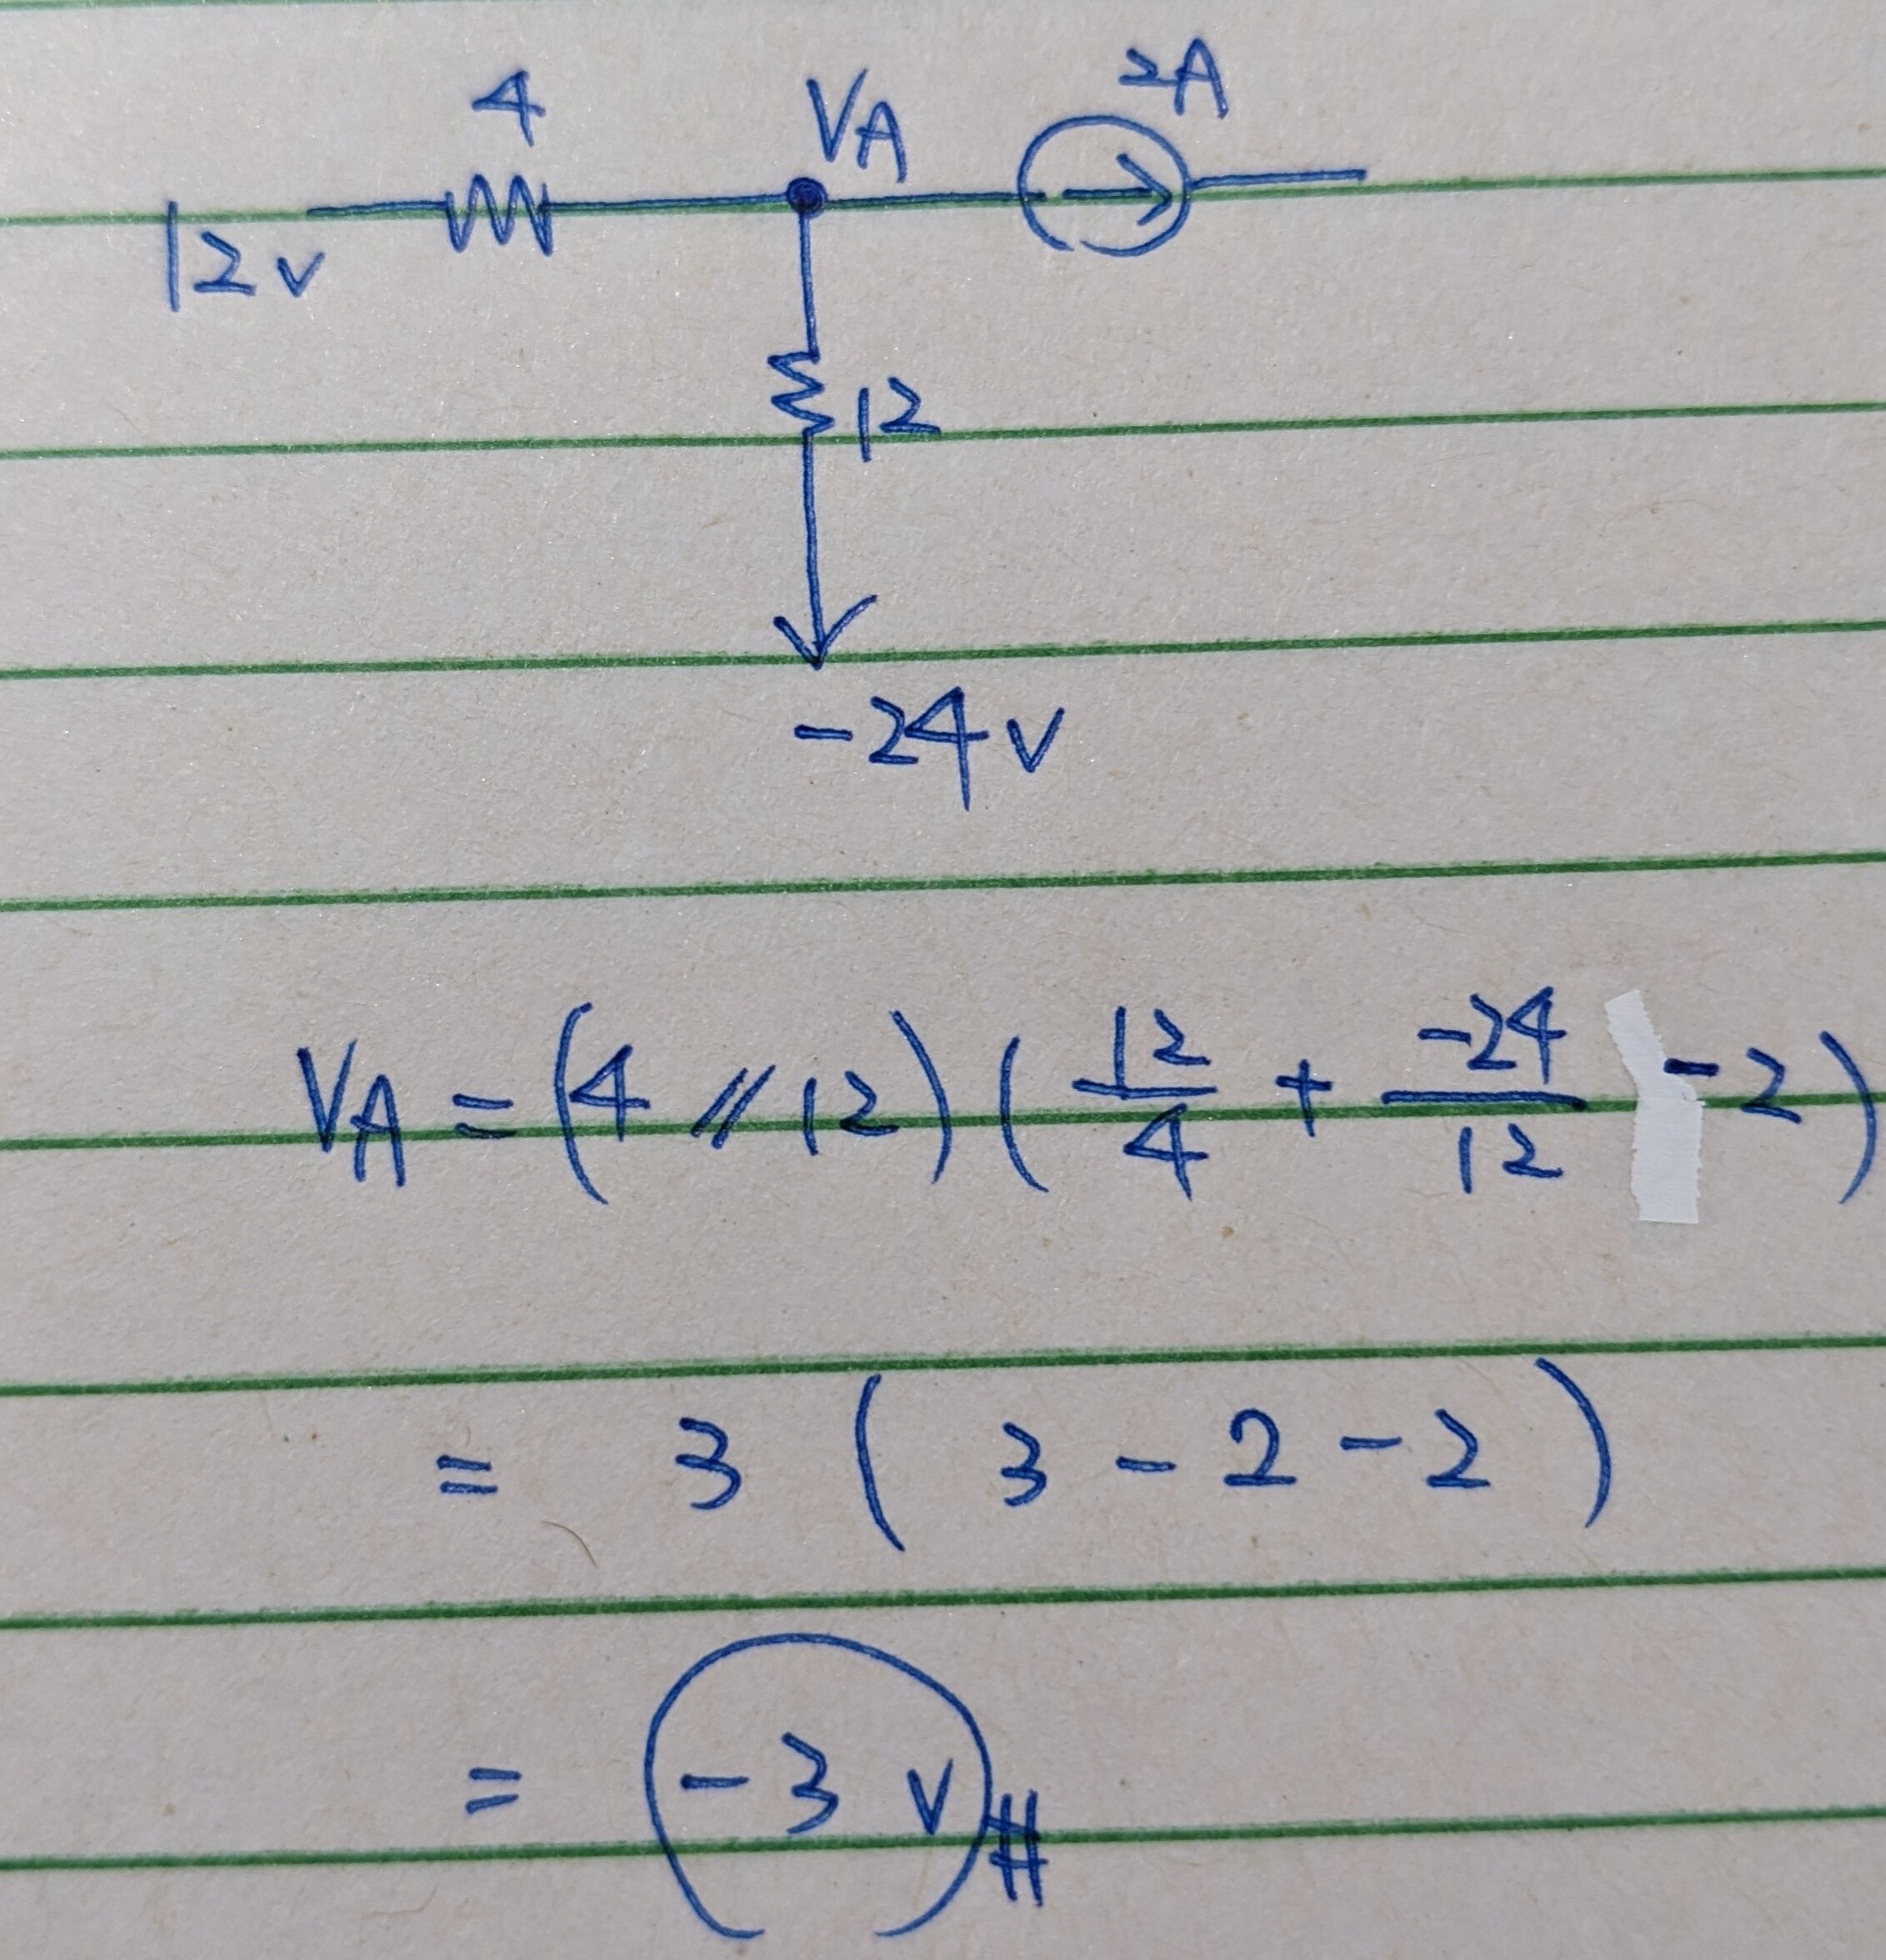 4 VA 2A
12v
12
-24v
VA = (4 // 12) ( 12/4 + -24/12 -2 )
= 3 ( 3 - 2 - 2 )
= -3 v #